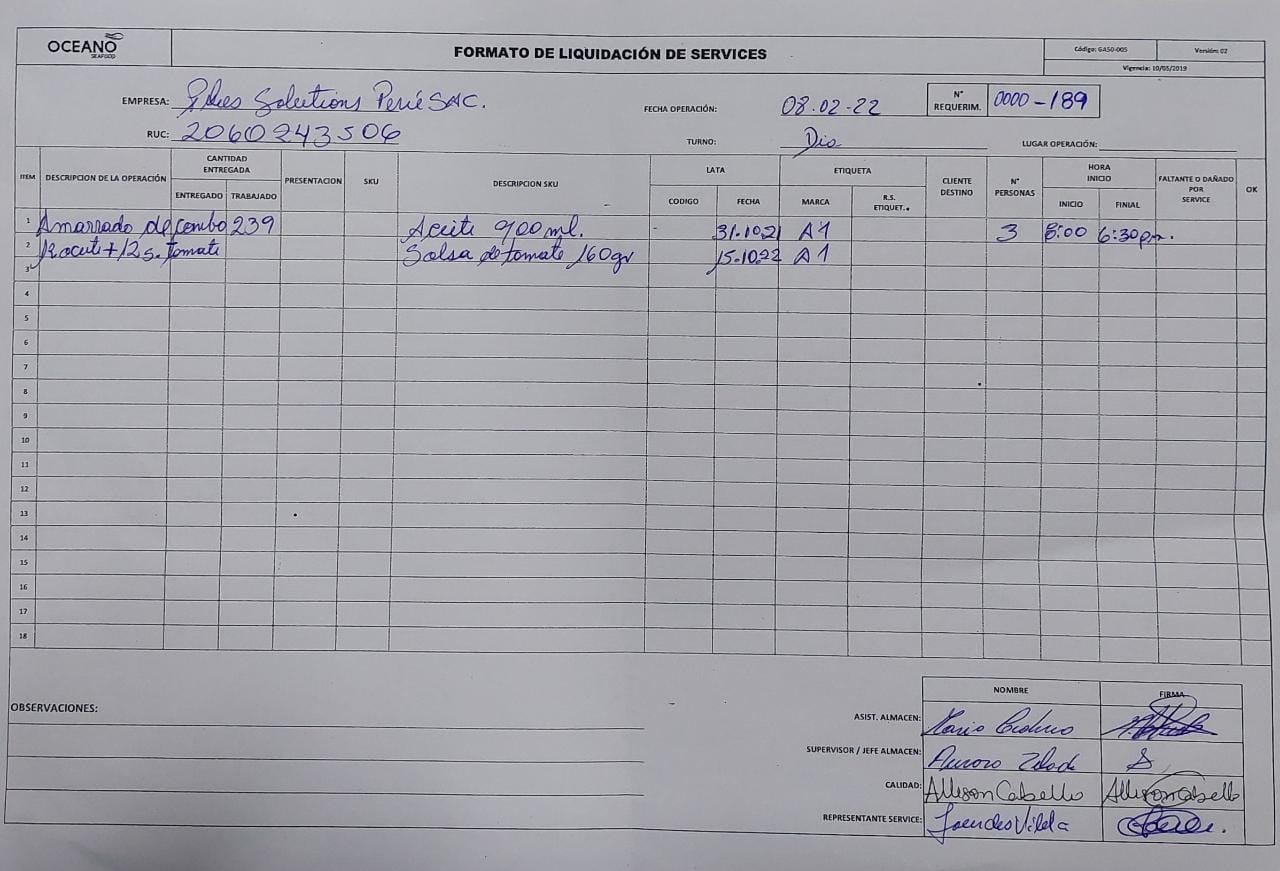 OCEANO
SEAFOOD
FORMATO DE LIQUIDACIÓN DE SERVICES
Código: GASO-005
Versión: 02
Vigencia: 10/05/2019
EMPRESA: Solutions Perú SAC.
FECHA OPERACIÓN: 08.02-22
N° REQUERIM. 0000-189
RUC: 20602243506
TURNO: Dia
LUGAR OPERACIÓN:
ITEM
DESCRIPCION DE LA OPERACIÓN
CANTIDAD ENTREGADA
ENTREGADO
TRABAJADO
PRESENTACION
SKU
DESCRIPCION SKU
LATA
CODIGO
FECHA
ETIQUETA
MARCA
R.S. ETIQUET.
CLIENTE DESTINO
N° PERSONAS
HORA INICIO
INICIO
FINIAL
FALTANTE O DAÑADO POR SERVICE
OK
1 Amarrado de combo 239 Aceite 900 ml. - 31.10.21 A1 3 8:00 6:30pm.
2 12 aceite + 12 s. tomate Salsa de tomate 160gr 15.10.22 A1
3
4
5
6
7
8
9
10
11
12
13
14
15
16
17
18
OBSERVACIONES:
NOMBRE
FIRMA
ASIST. ALMACEN:
SUPERVISOR / JEFE ALMACEN:
CALIDAD: Allison Cabello Allison Cabello
REPRESENTANTE SERVICE: Lourdes Vilela